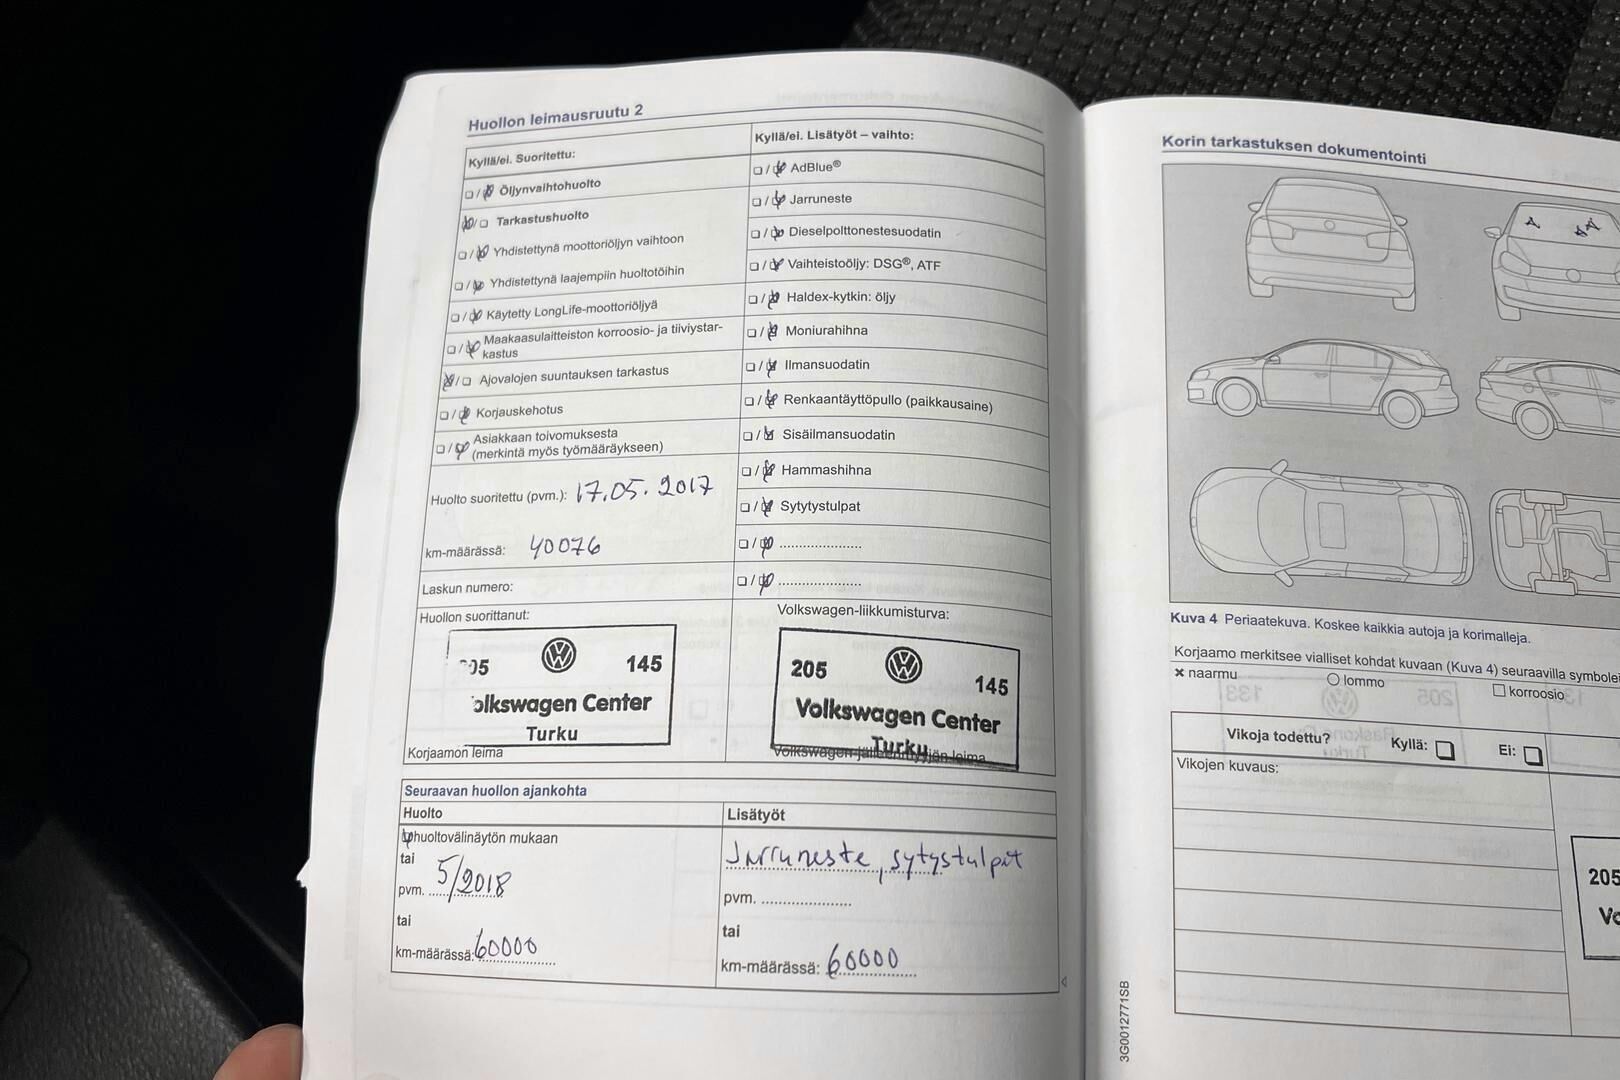 Huollon leimausruutu 2
Kyllä/ei. Suoritettu:
Öljynvaihtohuolto
Tarkastushuolto
Yhdistettynä moottoriöljyn vaihtoon
Yhdistettynä laajempiin huoltotöihin
Käytetty LongLife-moottoriöljyä
Maakaasulaitteiston korroosio- ja tiiviystar-
kastus
Ajovalojen suuntauksen tarkastus
Korjauskehotus
Asiakkaan toivomuksesta
(merkintä myös työmääräykseen)
Huolto suoritettu (pvm.): 17.05.2017
km-määrässä: 40076
Laskun numero:
Huollon suorittanut:
145
Volkswagen Center
Turku
Korjaamon leima
Kyllä/ei. Lisätyöt – vaihto:
AdBlue®
Jarruneste
Dieselpolttonestesuodatin
Vaihteistoöljy: DSG®, ATF
Haldex-kytkin: öljy
Moniurahihna
Ilmansuodatin
Renkaantäyttöpullo (paikkausaine)
Sisäilmansuodatin
Hammashihna
Sytytystulpat
Volkswagen-liikkumisturva:
205
145
Volkswagen Center
Turku
Volkswagen-jälleenmyyjän leima
Seuraavan huollon ajankohta
Huolto
huoltovälinäytön mukaan
tai
pvm. 5/2018
tai
km-määrässä: 60000
Lisätyöt
Jarruneste, sytystulpat
pvm.
tai
km-määrässä: 60000
Korin tarkastuksen dokumentointi
Kuva 4 Periaatekuva. Koskee kaikkia autoja ja korimalleja.
Korjaamo merkitsee vialliset kohdat kuvaan (Kuva 4) seuraavilla
naarmu
lommo
korroosio
Vikoja todettu? Kyllä: Ei:
Vikojen kuvaus:
205
3G0012771SB